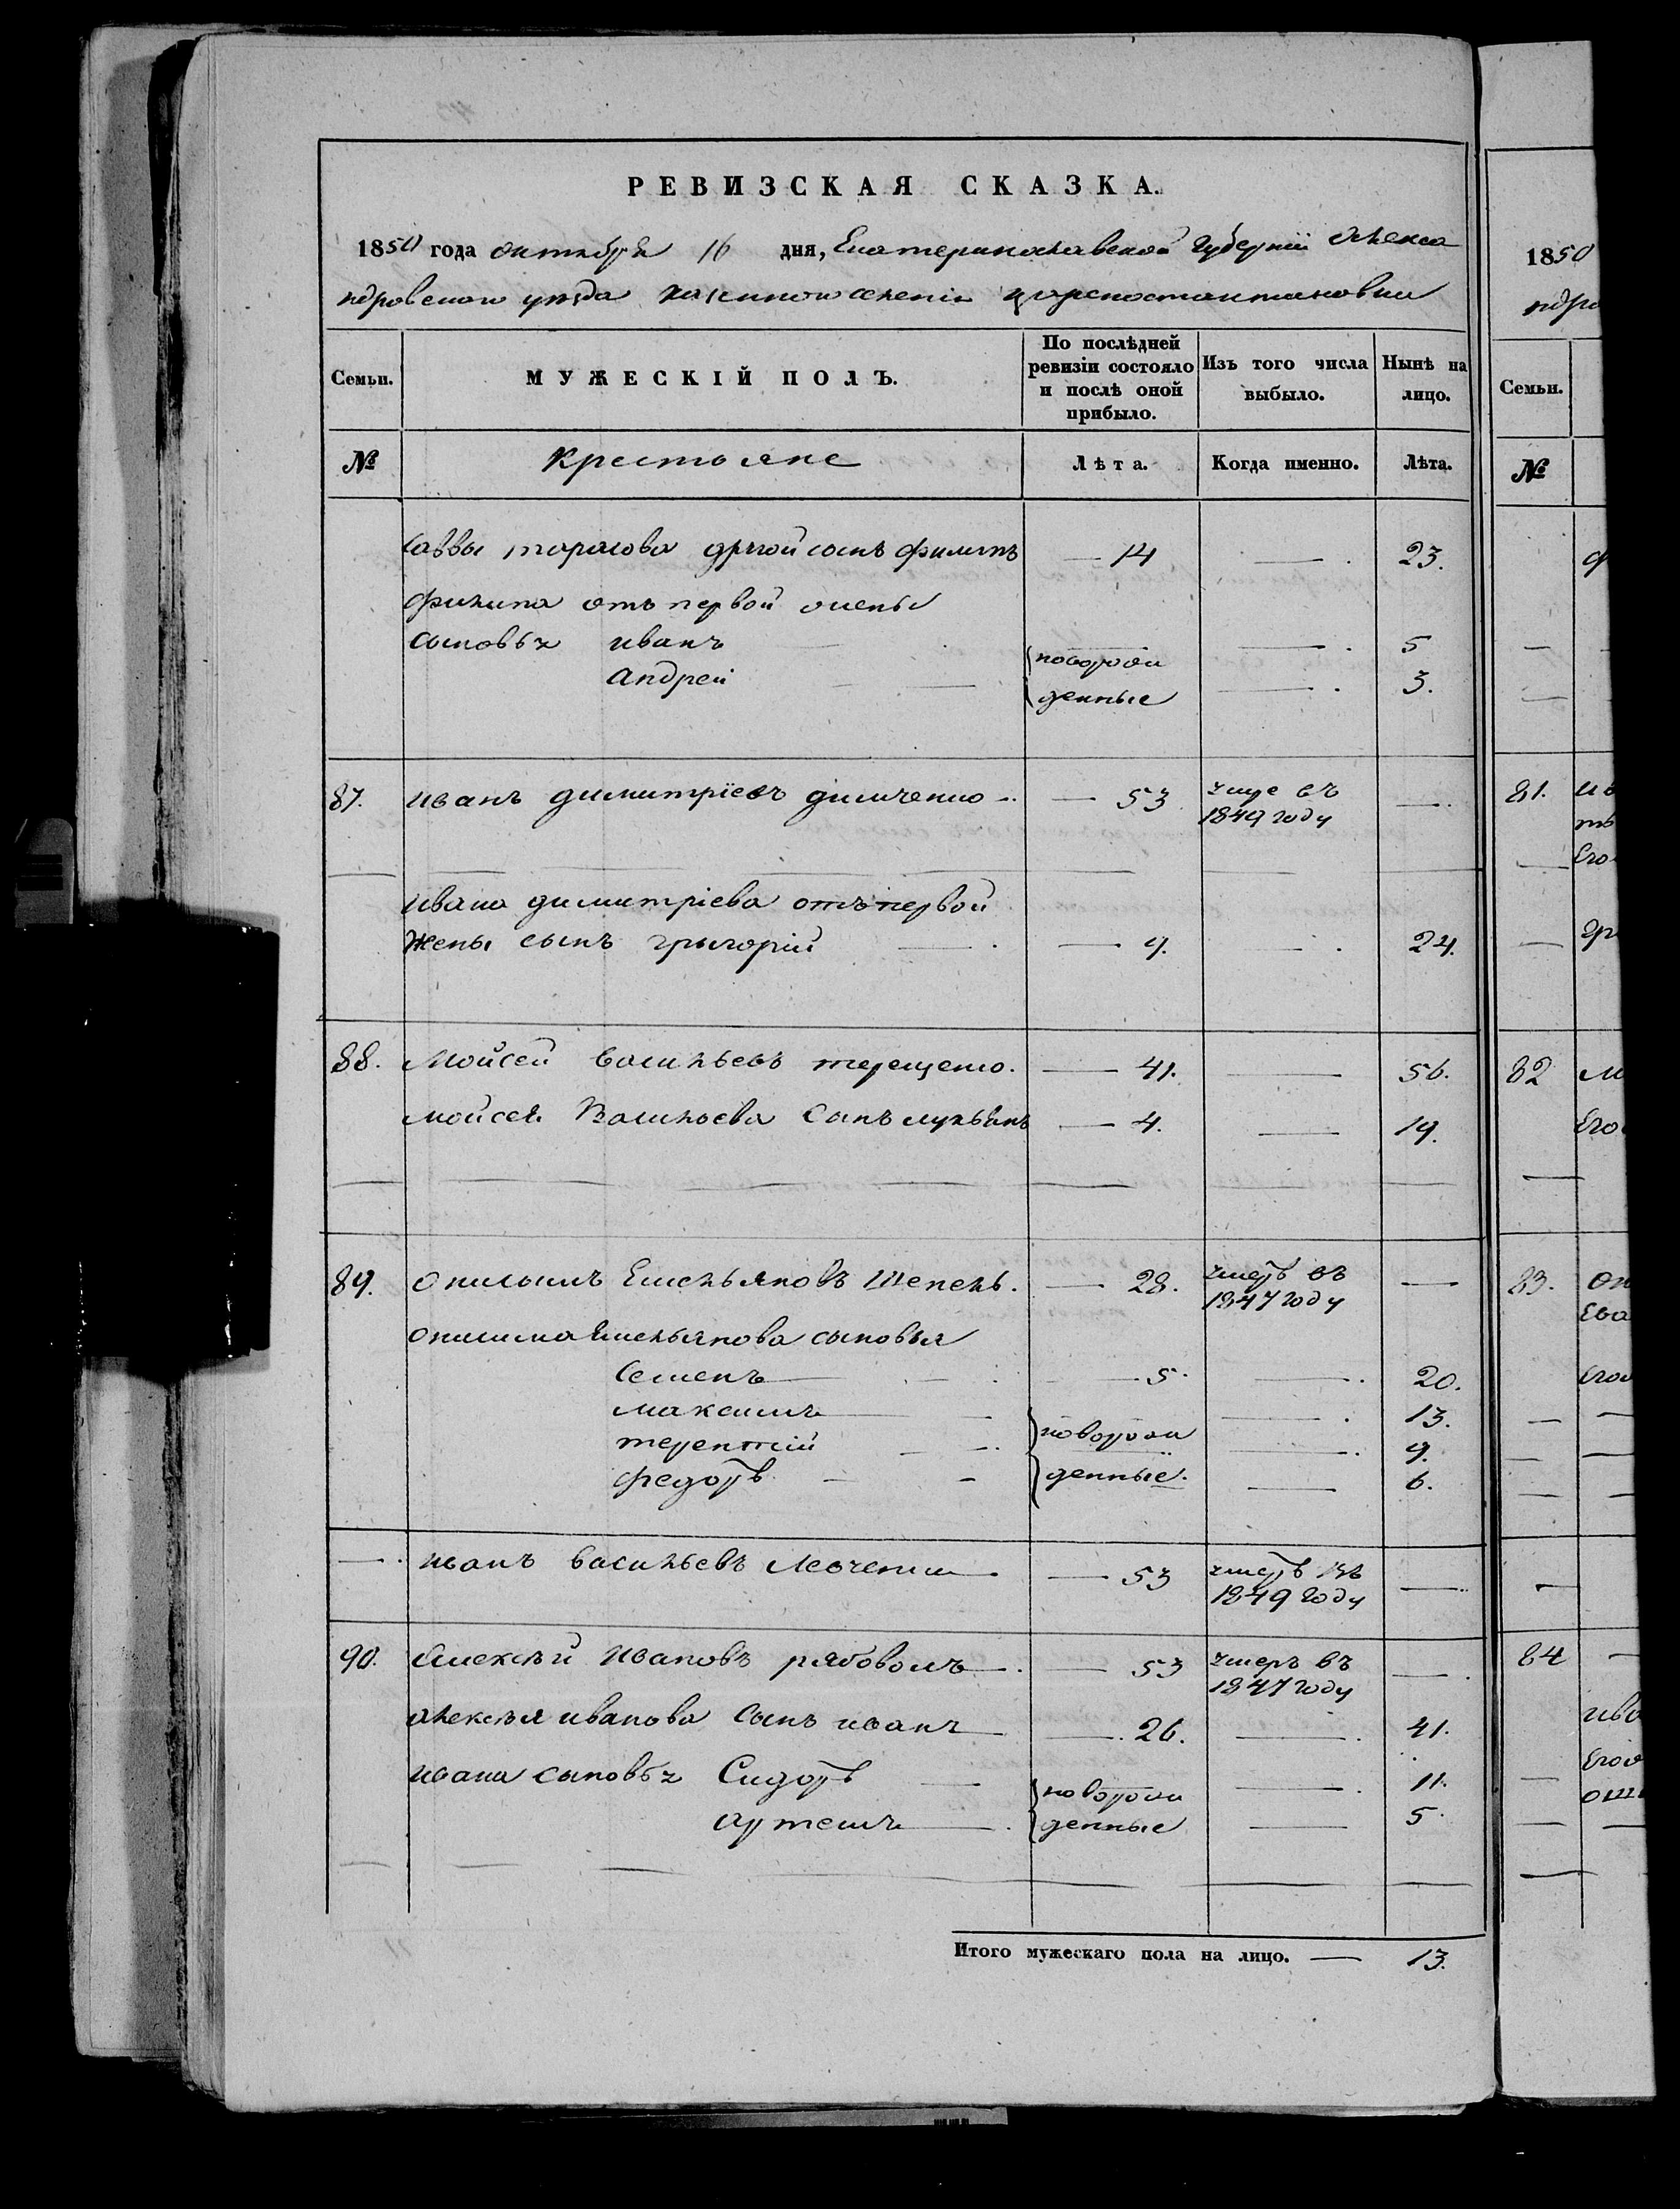 РЕВИЗСКАЯ СКАЗКА.
1850 года октября 16 дня, Екатеринославской Губерніи Алекса
ндровскаго уѣзда казенной селенія Цареконстантиновки
Семьи. МУЖЕСКІЙ ПОЛЪ. По послѣдней ревизіи состояло и послѣ оной прибыло. Изъ того числа выбыло. Нынѣ на лицо.
№ Крестьяне Лѣта. Когда именно. Лѣта.
Саввы тарасова другой сынъ филипъ — 14 — 23.
филипа отъ первой жены
сыновья иванъ новорож — 5
Андрей денные — 3.
87. иванъ димитріевъ димченко — 53 умре въ 1849 году —
ивана димитріева отъ первой
жены сынъ григорій — 9. — 24.
88. Мойсей васильевъ терещенко. — 41. — 56.
мойсея Васильева Сынъ лукьянъ — 4. — 19.
89. онисимъ Емельяновъ Шепель. — 28. умеръ въ 1847 году —
онисима Емельянова сыновья
Семенъ — 5. — 20.
максимъ — 13.
терентій новорож — 9.
федоръ денные. — 6.
— иванъ васильевъ Левченко — 53 умеръ въ 1849 году —
90. Алексѣй Ивановъ рябоволъ — 53 умеръ въ 1847 году —
алексѣя иванова сынъ иванъ — 26. — 41.
ивана сыновья Сидоръ новорож — 11.
артемъ денные — 5.
Итого мужескаго пола на лицо. — 13.
1850
ндро
Семьи.
№
81.
Его
82
Его
83.
84